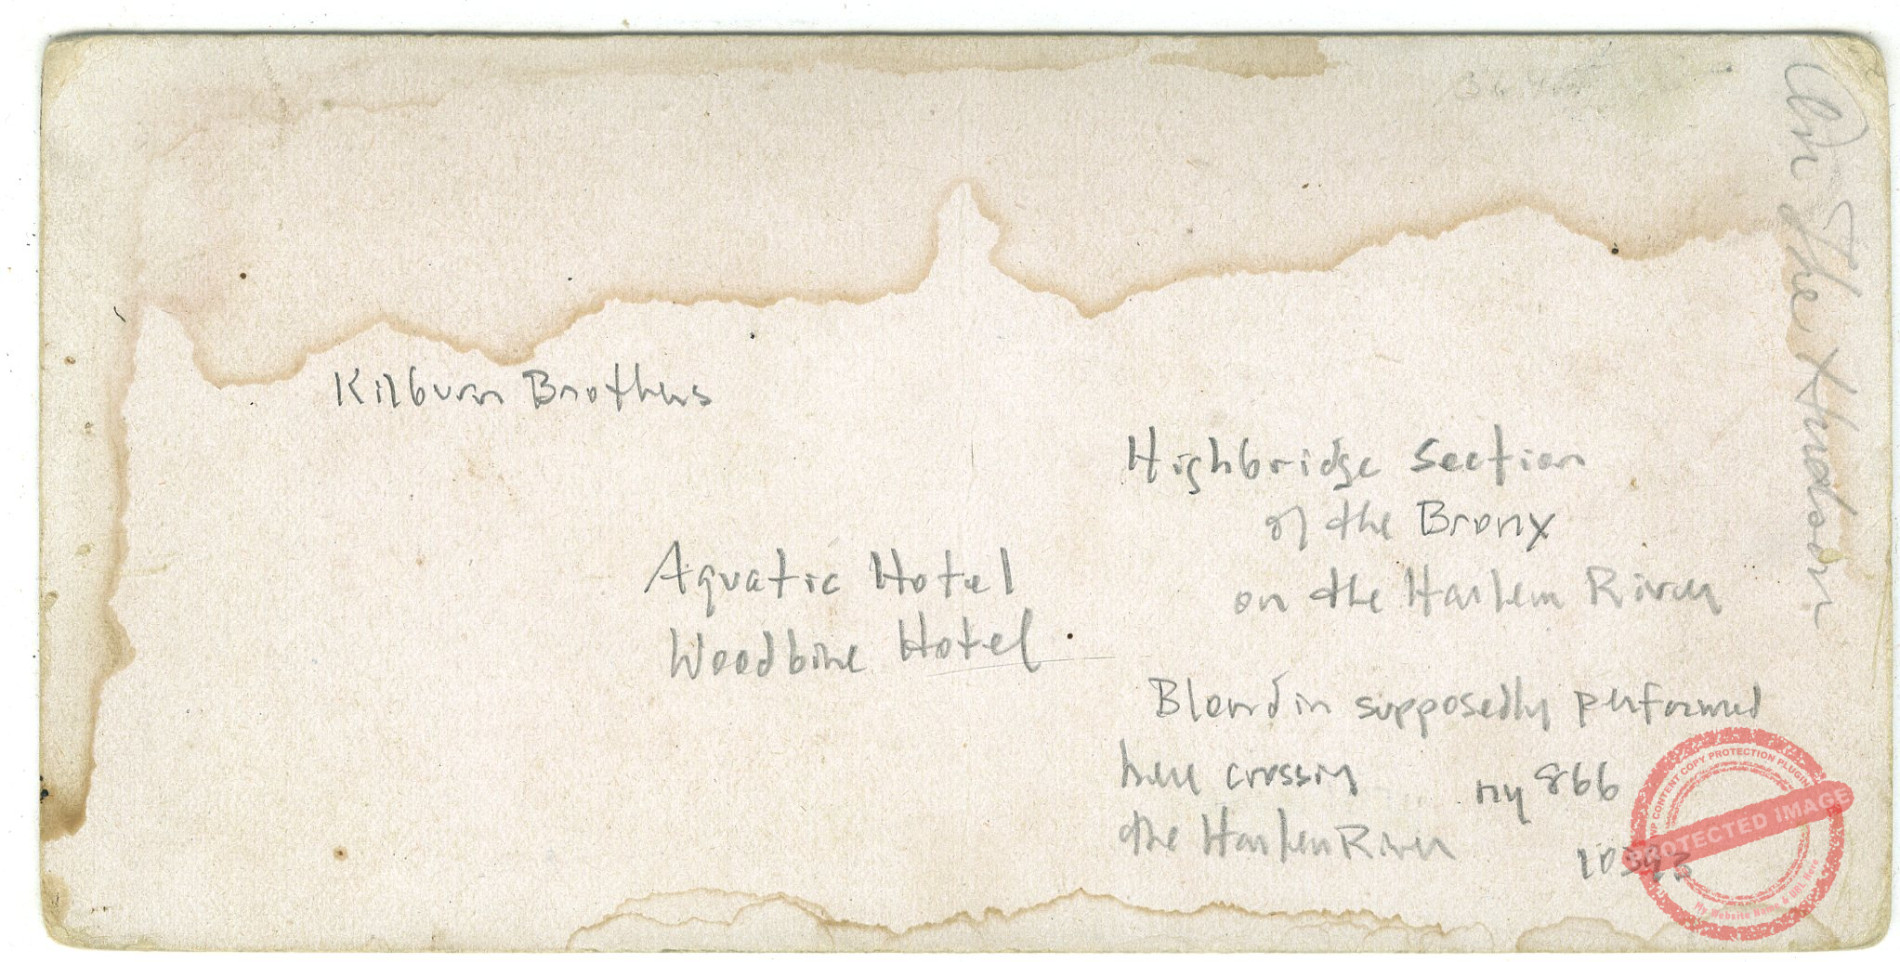 Kilburn Brothers
Highbridge Section
of the Bronx
on the Harlem River
Aquatic Hotel
Woodbine Hotel
Blondin supposedly performed
here crossing
the Harlem River
ny 866
10393
On The Hudson
PROTECTED IMAGE
WP CONTENT COPY PROTECTION PLUGIN
My Website Name & URL Here